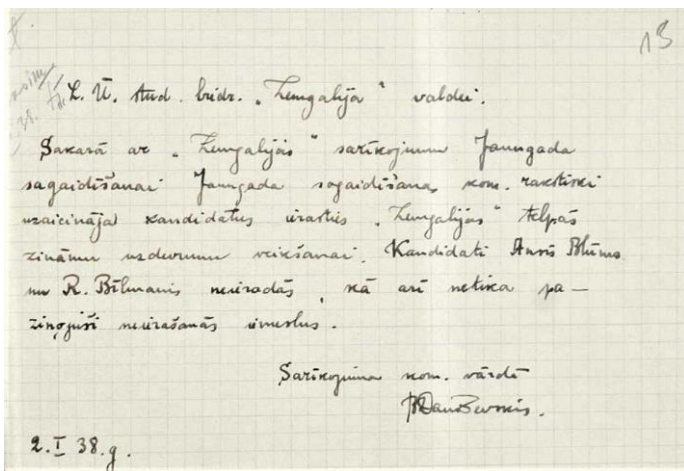 13
L. Ū. stud. biedr. „Zemgalija" valdei.
Sakarā ar „Zemgalijas" sarīkojumu Jaungada
sagaidīšanai Jaungada sagaidīšanas kom. rakstiski
uzaicināja kandidatus ierasties „Zemgalijas" telpās
zināmu uzdevumu veikšanai. Kandidati Ansis Blūms
un R. Bīlmanis neieradās, kā arī netika pa-
ziņojuši neierašanās iemeslus.
Sarīkojuma kom. vārdā
2. I 38. g.